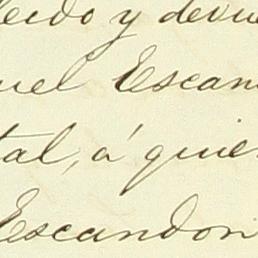 leido y devue
uel Escan
tal, á quien
Escandon